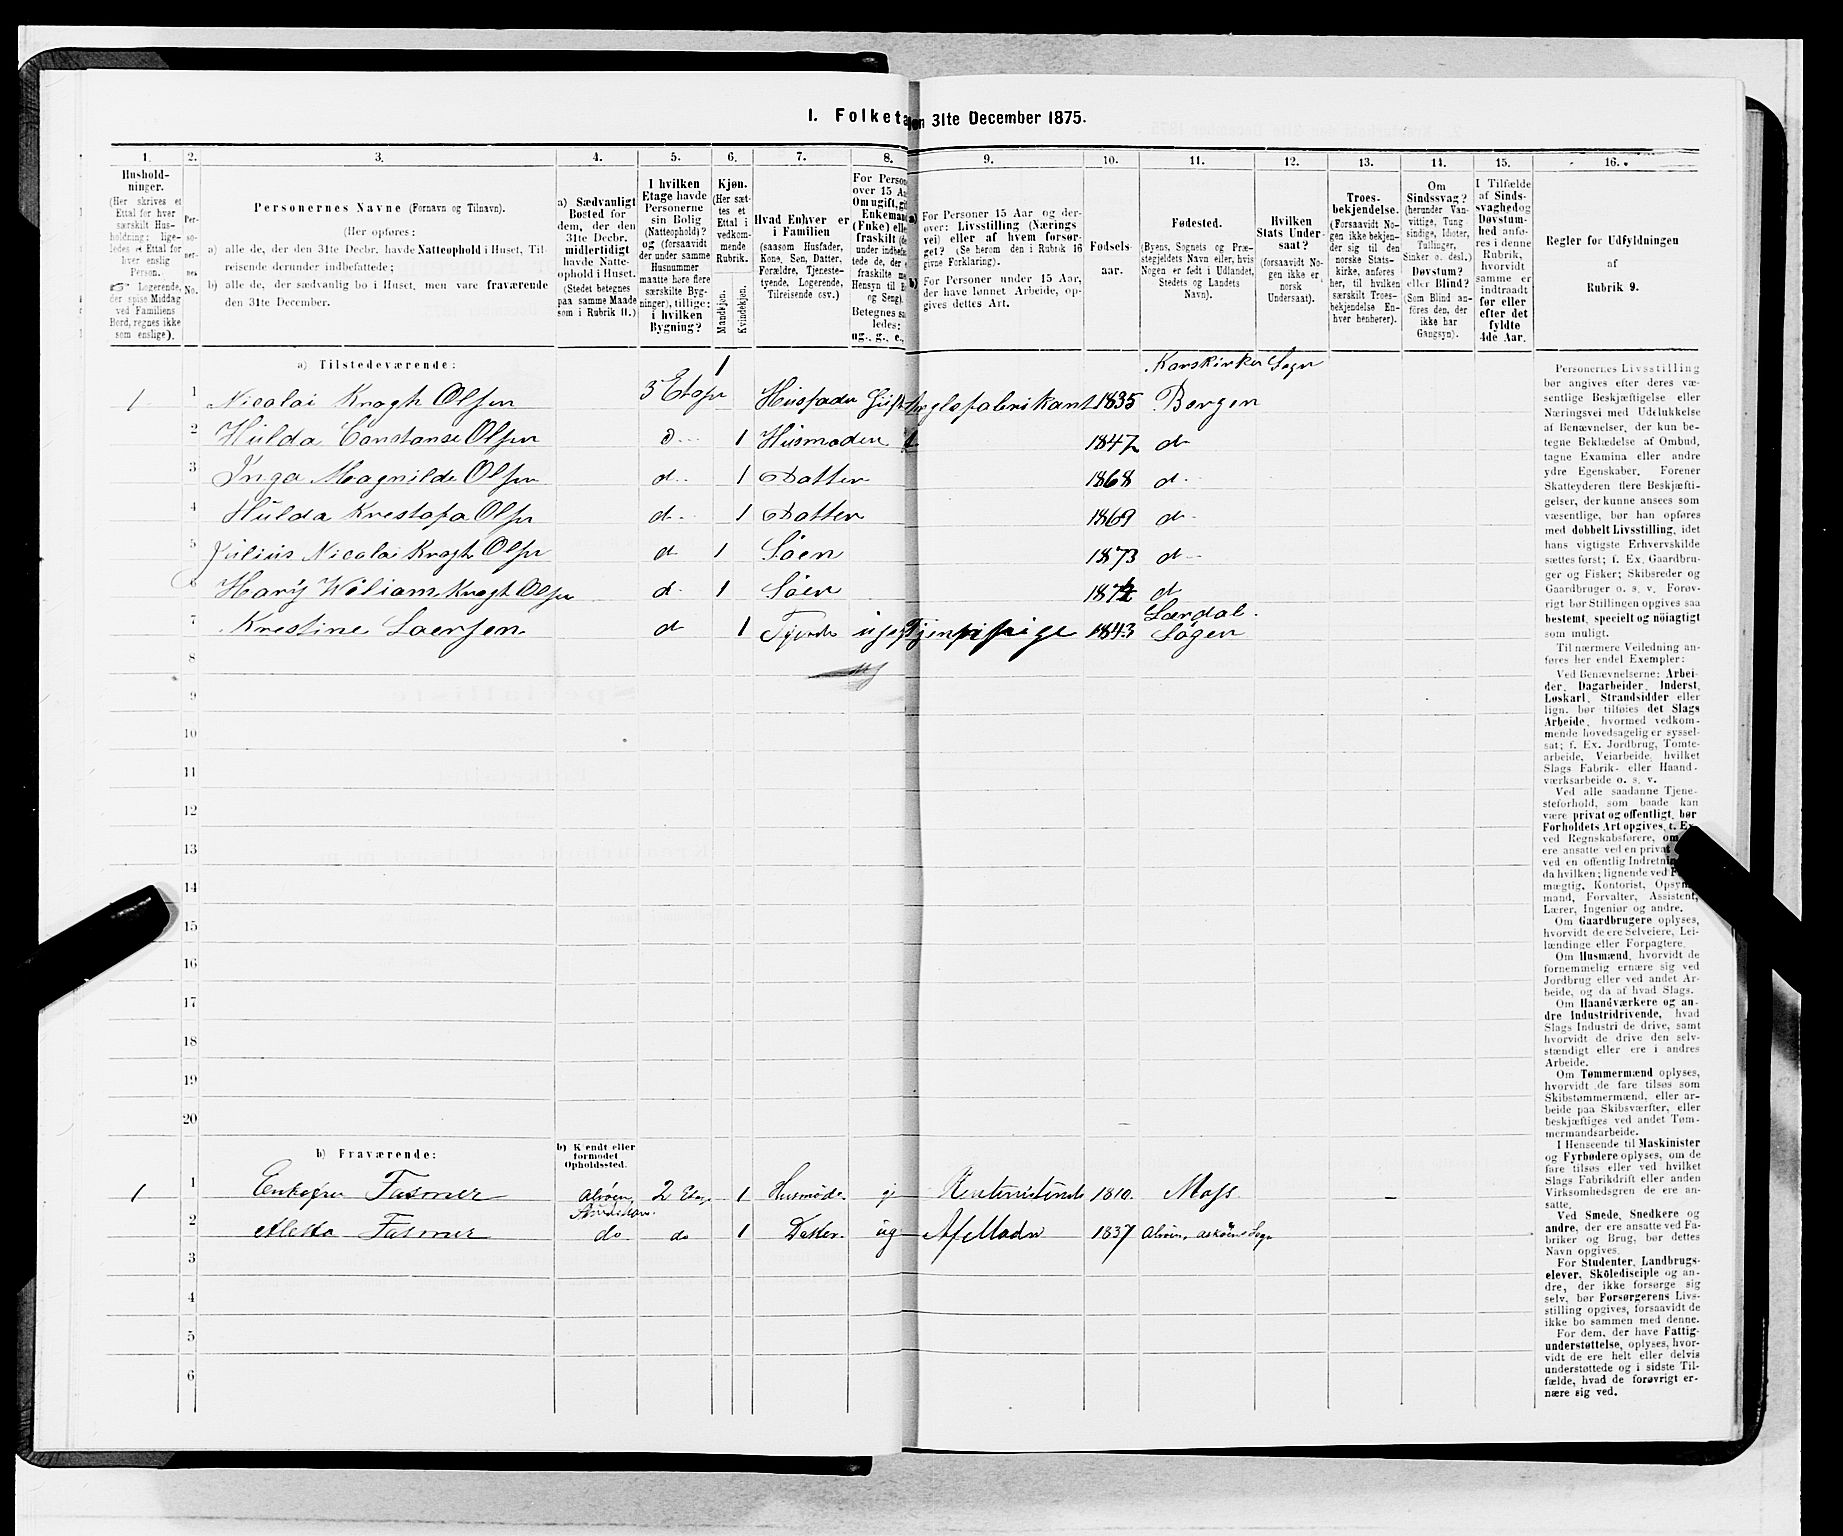 I. Folketa
en 31te December 1875.
1. 2. 3. 4. 5. 6. 7. 8. 9. 10. 11. 12. 13. 14. 15. 16.
Hushold-
ninger.
(Her skrives et
Ettal for hver
særskilt Hus-
holdning; lige-
ledes et Ettal for
hver enslig
Person.
Logerende,
der spise Middag
ved Familiens
Bord, regnes ikke
som enslige).
Per-
so-
ner-
nes
No.
Personernes Navne (Fornavn og Tilnavn).
(Her opføres:
a) alle de, der den 31te Decbr. havde Natteophold i Huset, Til-
reisende derunder indbefattede;
b) alle de, der sædvanlig bo i Huset, men vare fraværende
den 31te December.
a) Sædvanligt
Bosted for
dem, der den
31te Decbr.
midlertidigt
havde Natte-
ophold i Huset.
(Stedet betegnes
paa samme Maade
som i Rubrik 11.)
I hvilken
Etage havde
Personerne
sin Bolig
(Natteophold)?
og (forsaavidt
der under samme
Husnummer
maatte høre flere
særskilte Byg-
ninger), tillige:
i hvilken
Bygning?
Kjøn.
(Her sæt-
tes et
Ettal i
vedkom-
mende
Rubrik.
Mandkjøn.
Kvindekjøn.
Hvad Enhver er
i Familien
(saasom Husfader,
Kone, Søn, Datter,
Forældre, Tjeneste-
tyende, Logerende,
Tilreisende osv.)
For Person
over 15 Aa
Om ugift, gif
Enkemand
(Enke) elle
fraskilt (de
under indbefat-
tede de, der e
fraskilte me
Hensyn til B
og Seng).
Betegnes saa
ledes:
ug., g., e.,
a) For Personer 15 Aar og der-
over: Livsstilling (Nærings
vei) eller af hvem forsør-
get? (Se herom den i Rubrik 16
givne Forklaring).
b) For Personer under 15 Aar,
der have lønnet Arbeide, op-
gives dettes Art.
Fødsels-
aar.
Fødested.
(Byens, Sognets og Præ-
stegjeldets Navn eller, hvis
Nogen er født i Udlandet,
Stedets og Landets
Navn).
Hvilken
Stats Under-
saat?
(forsaavidt No-
gen ikke er
norsk
Undersaat).
Troes-
bekjendelse.
(Forsaavidt No-
gen ikke bekjen-
der sig til den
norske Stats-
kirke, anføres
her, til hvilken
særskilt Troes-
bekjendelse En-
hver henhører).
Om
Sindssvag?
(herunder Van-
vittige, Tung-
sindige, Idioter,
Tullinger,
Sinker o. desl.)
Døvstum?
eller Blind?
(Som Blind an-
føres den, der
ikke har
Gangsyn).
I Tilfælde
af Sinds-
svaghed og
Døvstum-
hed anfø-
res i denne
Rubrik,
hvorvidt
samme er
indtraadt
før eller
efter det
fyldte
4de Aar.
Regler for Udfyldningen
af
Rubrik 9.
a) Tilstedeværende:
Korskirkes Sogn
1 1 Nicolai Krogh Olsen 3 Etage 1 Husfader Gift 1835 Bergen
2 Hulda Constanse Olsen d 1 Husmoder 1847 d
3 Inga Magnilde Olsen d 1 Datter 1868 d
4 Hulda Krestofa Olsen d 1 Datter 1869 d
5 Julius Nicolai Krogh Olsen d 1 Søen 1873 d
6 Hary Wiliam Krogh Olsen d 1 Søen 187 d
7 Krestine Laersen d 1 1843 Lærdal
Sogen
8
9
10
11
12
13
14
15
16
17
18
19
20
b) Fraværende:
b) Kjendt eller
formodet
Opholdssted.
1 1 Enkefru Fasmer Alvøen 2 Etag. 1 Husmode. Rentenistinde 1810. Moss
2 Aletta Fasmer do do 1 Datter. ug Af Moder 1837 Alvøen, Askøens Sogn
3
4
5
6
Personernes Livsstilling
bør angives efter deres væ-
sentlige Beskjæftigelse eller
Næringsvei med Udelukkelse
af Benævnelser, der kun be-
tegne Beklædelse af Ombud,
tagne Examina eller andre
ydre Egenskaber. Forener
Skatteyderen flere Beskjæfti-
gelser, der kunne ansees som
væsentlige, bør han opføres
med dobbelt Livsstilling, idet
hans vigtigste Erhvervskilde
sættes først; f. Ex. Gaardbru-
ger og Fisker; Skibsreder og
Gaardbruger o. s. v. Forøv-
rigt bør Stillingen opgives saa
bestemt, specielt og nøiagtigt
som muligt.
Til nærmere Veiledning an-
føres her endel Exempler:
Ved Benævnelserne: Arbei-
der, Dagarbeider, Inderst,
Løskarl, Strandsidder eller
lign. bør tilføies det Slags
Arbeide, hvormed vedkom-
mende hovedsagelig er syssel-
sat; f. Ex. Jordbrug, Tomte-
arbeide, Veiarbeide, hvilket
Slags Fabrik- eller Haand-
værksarbeide o. s. v.
Ved alle saadanne Tjene-
steforhold, som baade kan
være privat og offentligt, bør
Forholdets Art opgives, t. Ex.
ved Regnskabsførere, om
ere ansatte ved en privat
ved en offentlig Indretnin
da hvilken; lignende ved F
mægtig, Kontorist, Opsyns
mand, Forvalter, Assistent,
Lærer, Ingeniør og andre.
Om Gaardbrugere oplyses,
hvorvidt de ere Selveiere, Lei-
lændinge eller Forpagtere.
Om Husmænd, hvorvidt de
fornemmelig ernære sig ved
Jordbrug eller ved andet Ar-
beide, og da af hvad Slags.
Om Haandværkere og an-
dre Industridrivende, hvad
Slags Industri de drive, samt
hvorvidt de drive den selv-
stændigt eller ere i andres
Arbeide.
Om Tømmermænd oplyses,
hvorvidt de fare tilsøs som
Skibstømmermænd, eller ar-
beide paa Skibsværfter, eller
beskjæftiges ved andet Tøm-
mermandsarbeide.
I Henseende til Maskinister
og Fyrbødere oplyses, om de
fare tilsøs eller ved hvilket
Slags Fabrikdrift eller anden
Virksomhedsgren de ere an-
satte.
Ved Smede, Snedkere og
andre, der ere ansatte ved Fa-
briker og Brug, bør dettes
Navn opgives.
For Studenter, Landbrugs-
elever, Skoledisciple og an-
dre, der ikke forsørge sig
selv, bør Forsørgerens Livs-
stilling opgives, forsaavidt de
ikke bo sammen med denne.
For dem, der have Fattig-
understøttelse, oplyses, hvor-
vidt de ere helt eller delvis
understøttede og i sidste Til-
fælde, hvad de forøvrigt er-
nære sig ved.